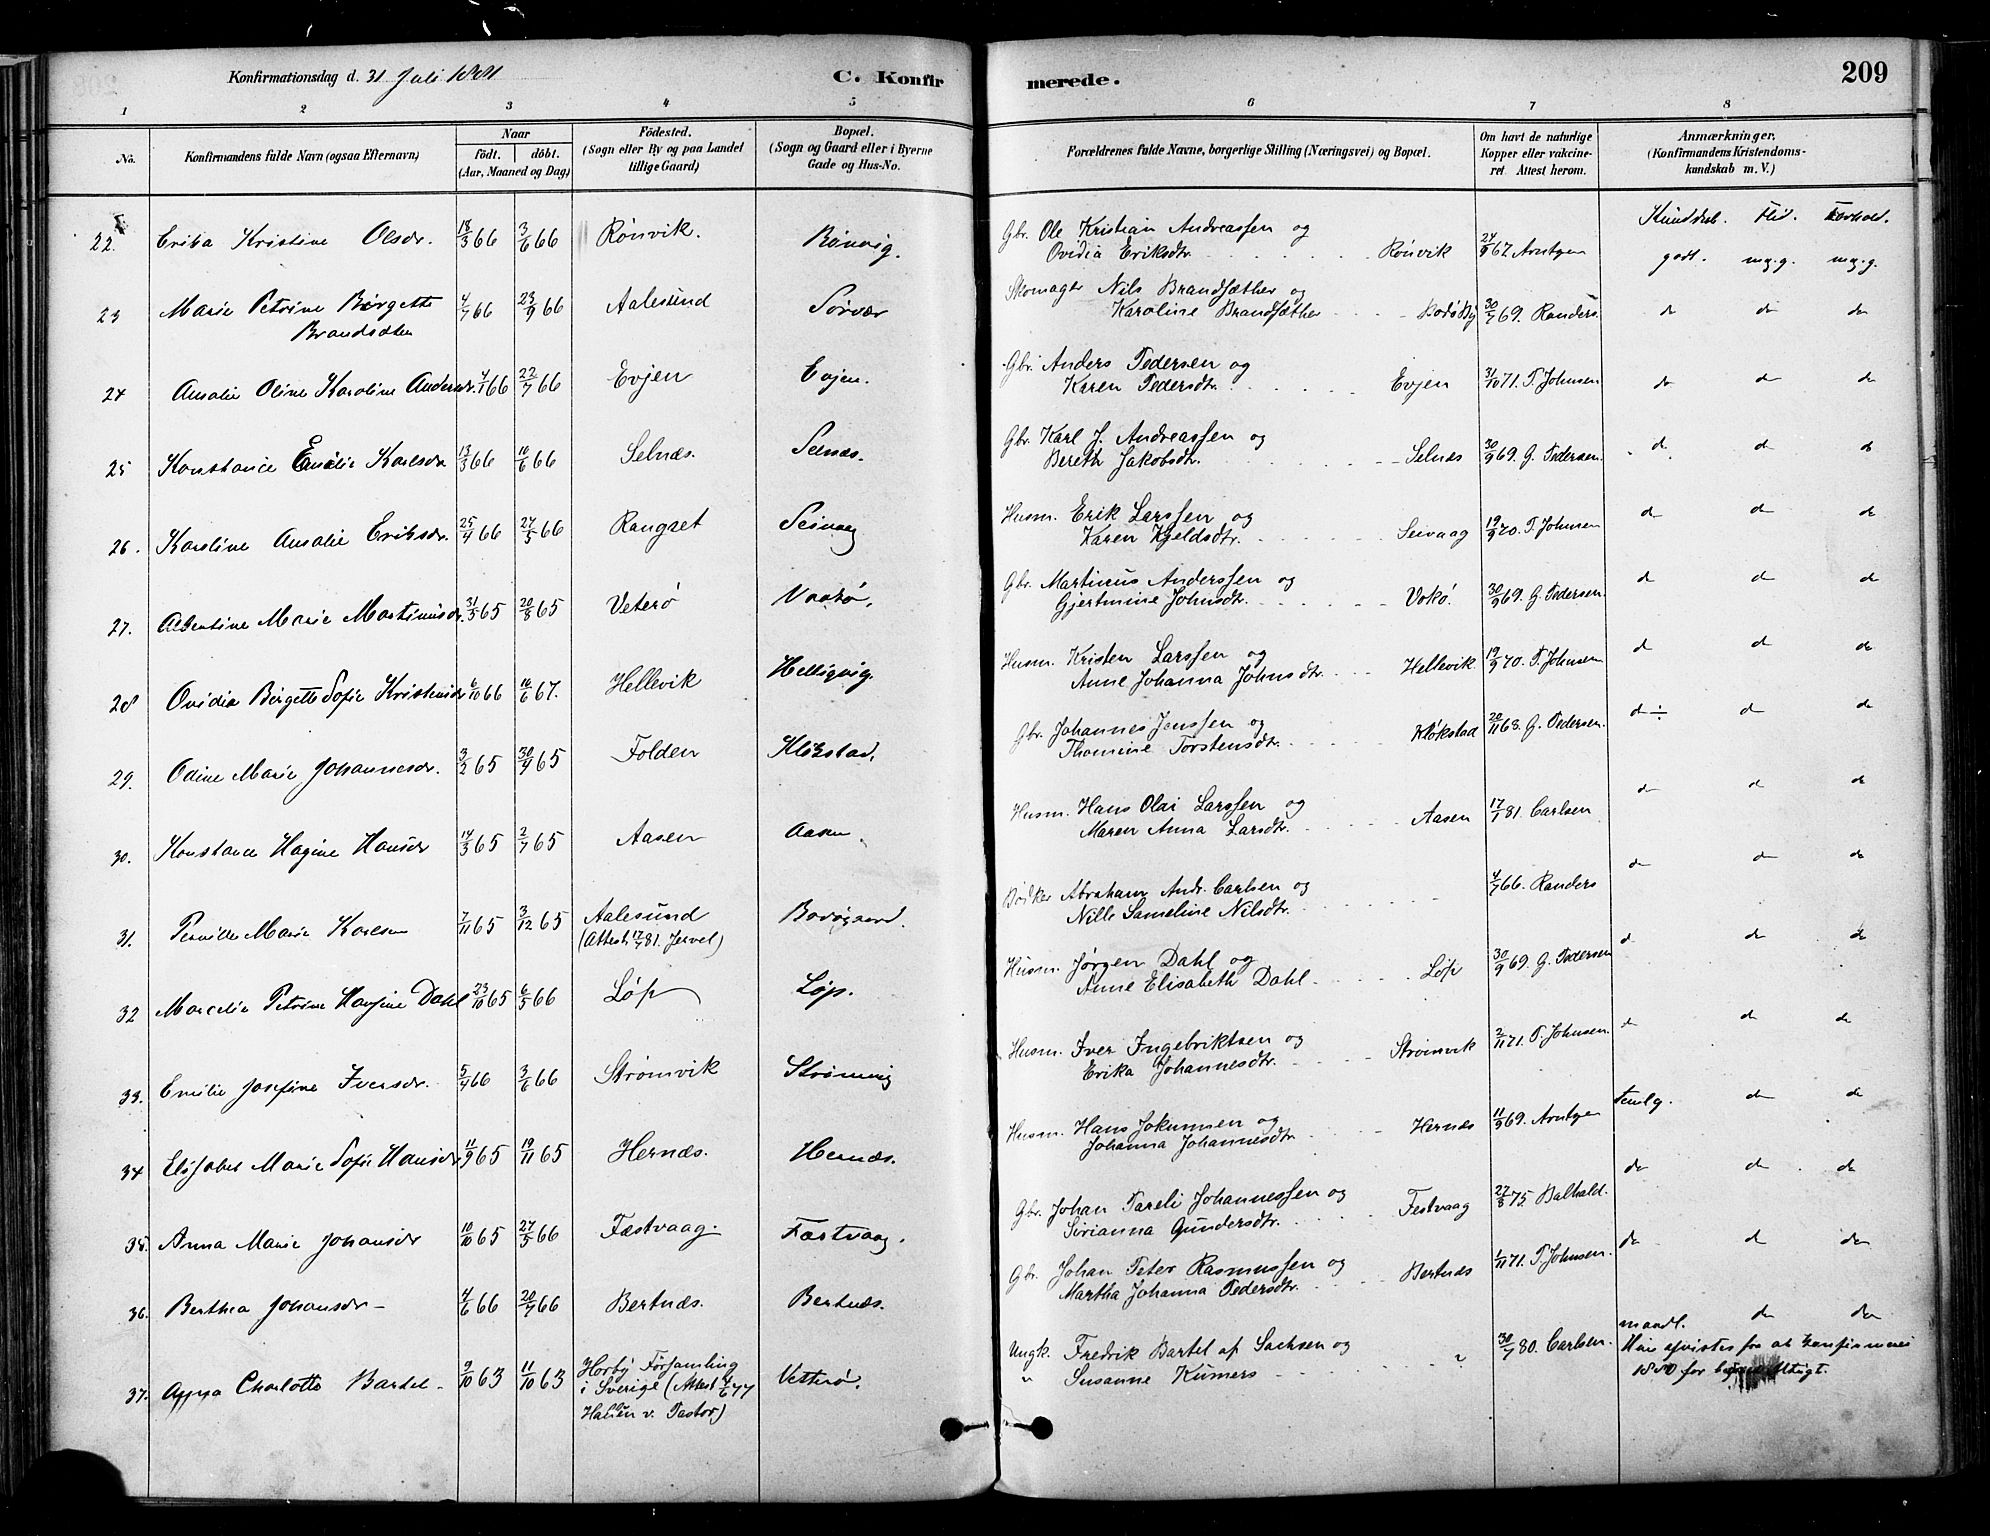 Konfirmationsdag d. 31 Juli 1881
C. Konfirmerede.
209
1 2 3 4 5 6 7 8
No.
Konfirmandens fulde Navn (ogsaa Efternavn)
Naar
födt. döbt.
(Aar, Maaned og Dag)
Födested.
(Sogn eller By og paa Landet
tillige Gaard)
Bopæl.
(Sogn og Gaard eller i Byerne
Gade og Hus-No.
Forældrenes fulde Navne, borgerlige Stilling (Næringsvei) og Bopæl.
Om havt de naturlige
Kopper eller vakcine-
ret. Attest herom.
Anmærkninger.
(Konfirmandens Kristendoms-
kundskab m. V.)
Kundsk. Flid. Forhold.
22. Erika Kristine Olsdr. 18/3 66 3/6 66 Rönvik. Rönvig. Gbr. Ole Kristian Andreassen og
Ovidia Eriksdtr. Rönvik 24/9 67 Arntzen godt. mg.g. mg.g.
23 Marie Petrine Birgette 4/7 66 23/9 66 Aalesund Sörvær Skomager Nils Brandsæther og
Brandsæter Karoline Brandsæther Bodö By 30/7 69. Randers. do do do
24 Amalie Oline Karoline Andersdr. 4/1 66 22/7 66 Evjen Evjen. Gbr. Anders Pedersen og
Karen Pedersdtr. Evjen 31/10 71. P. Johnsen do do do
25 Konstance Emilie Karlsdr 13/3 66 10/6 66 Selnæs. Selnæs. Gbr. Karl J. Andreassen og
Bereth Jakobsdtr. Selnæs 30/9 69. G. Pedersen. d d d
26. Karoline Amalie Eriksdr. 25/4 66 27/5 66 Rangset Seivaag Husm. Erik Larssen og
Karen Kjeldsdtr. Seivaag 19/9 70. P. Johnsen d d d
27. Albertine Marie Martinusdr. 31/5 65 20/8 65 Veterö Vaakö. Gbr. Martinus Anderssen og
Gjertmine Johnsdtr. Vokö. 30/9 69. G. Pedersen. d d d
28 Ovidia Birgette Sofie Kristensdr 6/10 66 16/6 67. Hellevik Helligvig. Husm. Kristen Larssen og
Anne Johanna Johnsdtr. Hellevik 19/9 70. P. Johnsen d d do
29. Odine Marie Johannesdr. 3/2 65 30/4 65 Folden Klökstad. Gbr. Johannes Jenssen og
Thomine Torstensdtr. Klökstad 20/11 68. G. Pedersen. d ÷ d d
30. Konstance Hagine Hansdr 14/3 65 2/7 65 Aasen Aasen. Husm. Hans Olai Larssen og
Maren Anna Larsdtr. Aasen 17/7 81. Carlsen d d d
31. Pernille Marie Karlsen 7/11 65 3/12 65 Aalesund Bodögaard. Bödker Abraham Andr. Carlsen og
(Attest 17/7 81. Jervel) Nille Sameline Nilsdtr. 4/7 66. Randers d d d
32 Marcelie Petrine Hansine Dahl 23/10 65 6/5 66 Löp Löp. Husm. Jörgen Dahl og
Anne Elisabeth Dahl. Löp 30/9 69. G. Pedersen d d d
33. Emilie Josefine Iversdr. 5/4 66 3/6 66 Strömvik Strömvig Husm. Iver Ingebriktsen og
Erika Johannesdtr. Strömvik 2/11 71. P. Johnsen. d d d
34 Elisabet Marie Sofie Hansdr 11/9 65 19/11 65 Hernæs. Hernæs. Husm. Hans Jokumsen og
Johanna Johannesdtr. Hernæs 11/9 69. Arntzen Temlg. do d
35. Anna Marie Johansdr 10/10 65 27/5 66 Fæstvaag. Fæstvaag. Gbr. Johan Pareli Johannessen og
Sörianna Gundersdtr. Festvaag 27/8 75. Balhald. do d do
36. Berthea Johansdr 4/6 66 20/7 66 Bertnæs. Bertnæs. Gbr. Johan Peter Rasmussen og
Martha Johanna Pedersdtr. Bertnæs 1/11 71. P. Johnsen. do d do
37. Anna Charlotte Bartel 9/10 63 11/10 63 Horby Församling Vetterö. Ungk. Fredrik Bartel af Sachsen og
i Sverige (Attest 4/6 77 " Susanne Kumers " 30/7 80. Carlsen. maadl. do do
Hansen v. Pastor) Hun afvistes fra at konfirmeres
1880 for